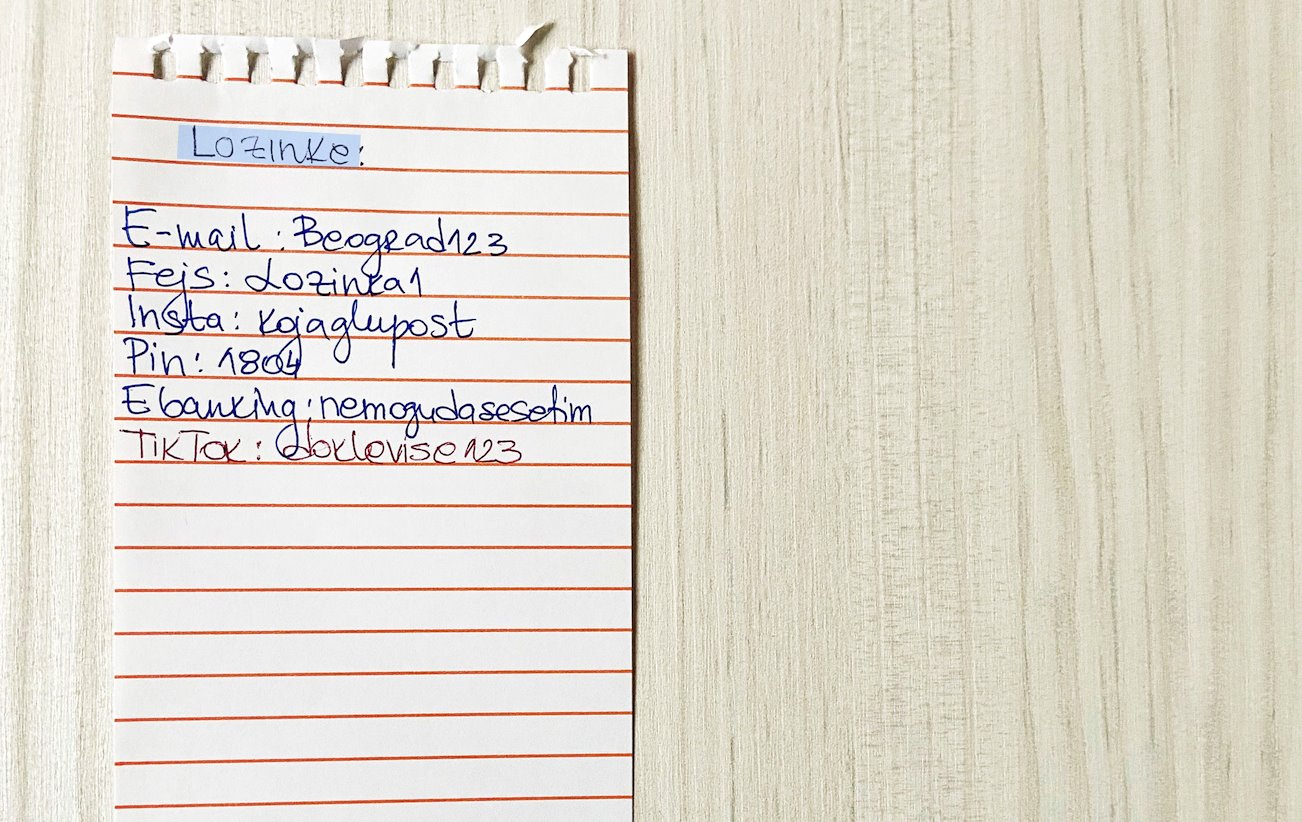 Lozinke:
E-mail: Beograd123
Fejs: Lozinka1
Insta: kojaglupost
Pin: 1804
Ebanking: nemogudasesetim
TikTok: doklevise123